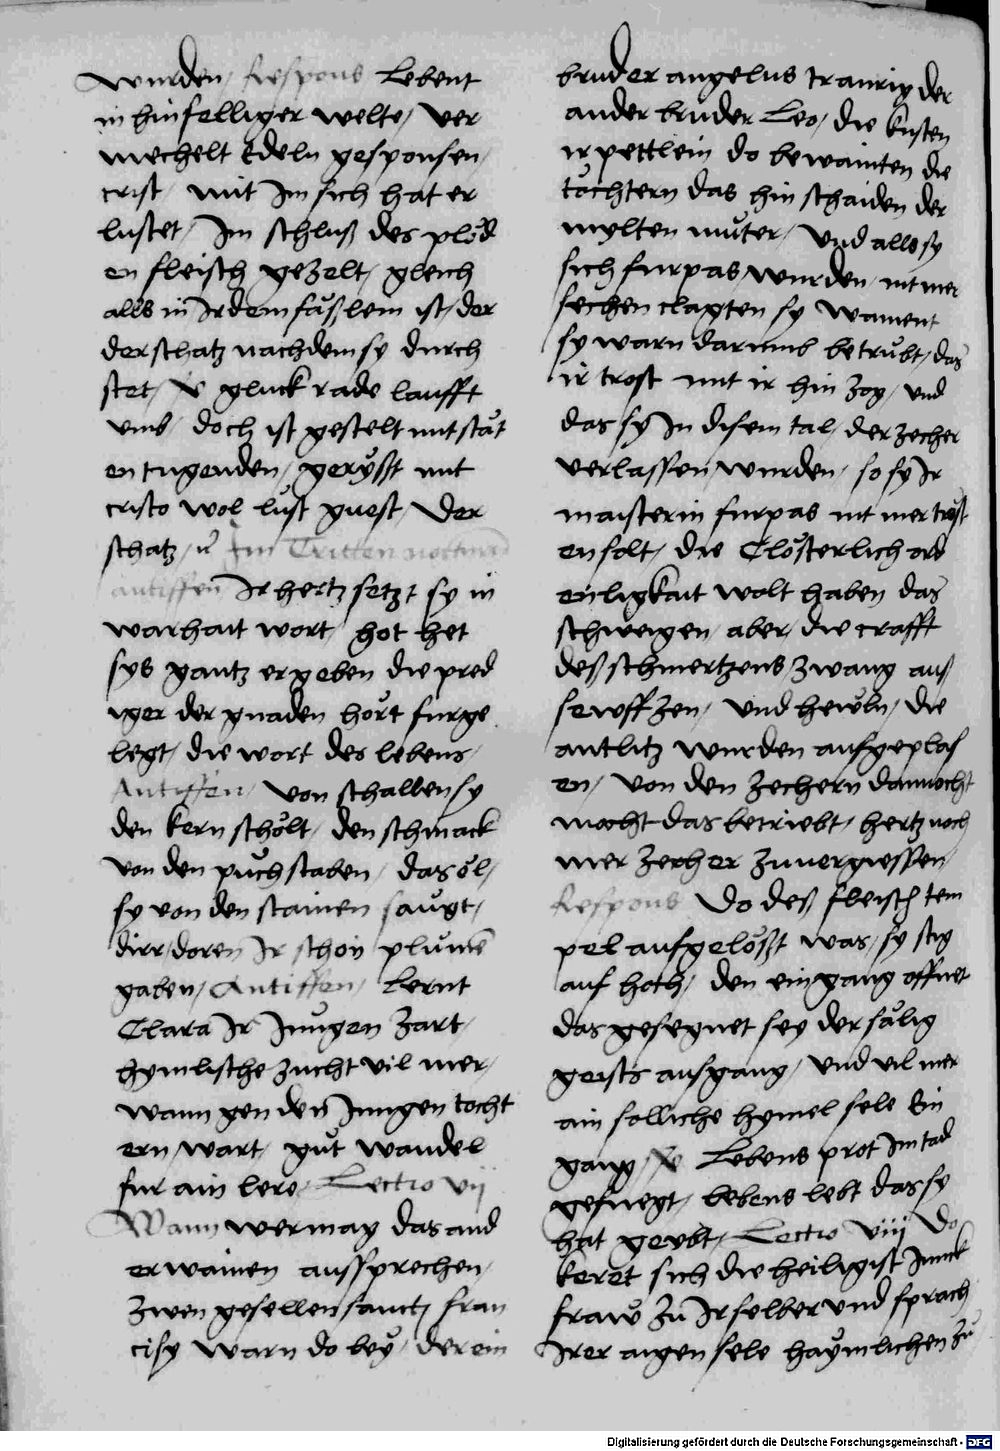 wurden / Respons Lebent
in hinfelliger welte / ver
mechelt Edeln gesponsen /
crist / mit Im sich hat er
lustet / Im schluß des plöd
en fleisch gezelt / gleich
alls in Irdem fäßlein ist / der
der schatz nach dem sy durch
stet / gluck rade laufft
umb / doch ist gestelt mit stät
en tugenden / gerüsst mit
cristo wol lust guest / Der
schatz / Im Tritten nocturn
antiffen Ir hertz setzt sy in
warhait wort / got het
sys gantz ergeben die pred
iger der gnaden hört furge
legt / die wort des lebens /
Antiffen / von schallen sy
den kern schölt / den schmack
von den puchstaben / das öl /
sy von den stainen saugt /
dirr / doren Ir schon plumē
gaben / Antiffen / Lernt
Clara Ir Jungen zart /
hymlische zucht vil mer /
wann gen den Jungen tocht
ern / wart / gut wandel
fur ain lere / Lectio vij
Wann wer mag das and
er wainen aussprechen /
zwen gesellen sanct fran
cisy warn do bey / der ein
bruder angelus traurig der
ander bruder Leo / die kusten
ir pettlein do bewainten die
töchtern das hin schaiden der
mylten muter / Und alls sy
sich furpas / wurden / nit mer
sechen clagten sy wament
sy warn darumb betrubt / das
ir trost mit ir hin zog / und
das sy In disem tal / der zecher
verlassen / wurden / so sy Ir
maisterin furpas nit mer tröst
en solt / die Clösterlich ord
enligkait wolt haben das
schweigen / aber / die crafft
deß schmertzens / zwang auß
sewffzen / und hewln / die
antlitz wurden aufgeplas
en / von den zechern dannocht
mocht das betriebt / hertz noch
mer zecher zuvergiessen /
Respons Do deß fleisch tem
pel aufgelößt was / sy stig
auf hoch / den eingang offnet
das gesegnet sey der sälig
geists ausgang / und vil mer
ain solliche hymel sele Ein
gang / Lebens prot Im tad
gefuegt / lebens lebt das sy
hat geubt / Lectio viij Do
keret sich die heiligist Junck
fraw zu Ir selber und sprach
Irer aigen sele haymlichen zu
Digitalisierung gefördert durch die Deutsche Forschungsgemeinschaft - DFG